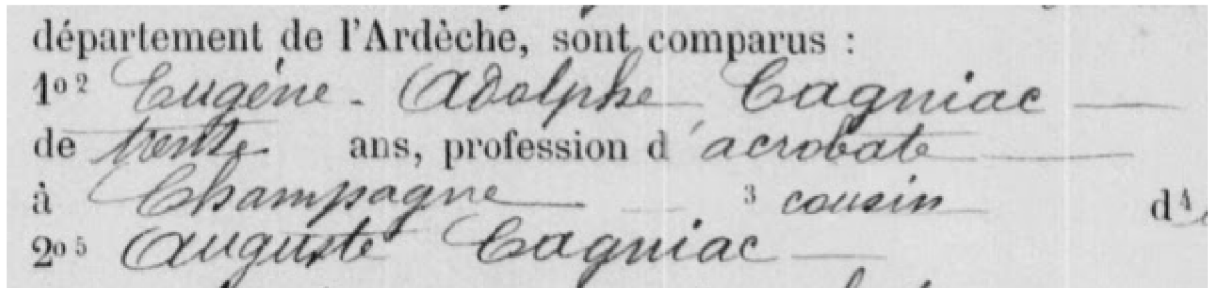 département de l'Ardèche, sont comparus :
1o 2 Eugène - Adolphe Cagniac
de trente ans, profession d'acrobate
à Champagne 3 cousin d 4
2o 5 Auguste Cagniac